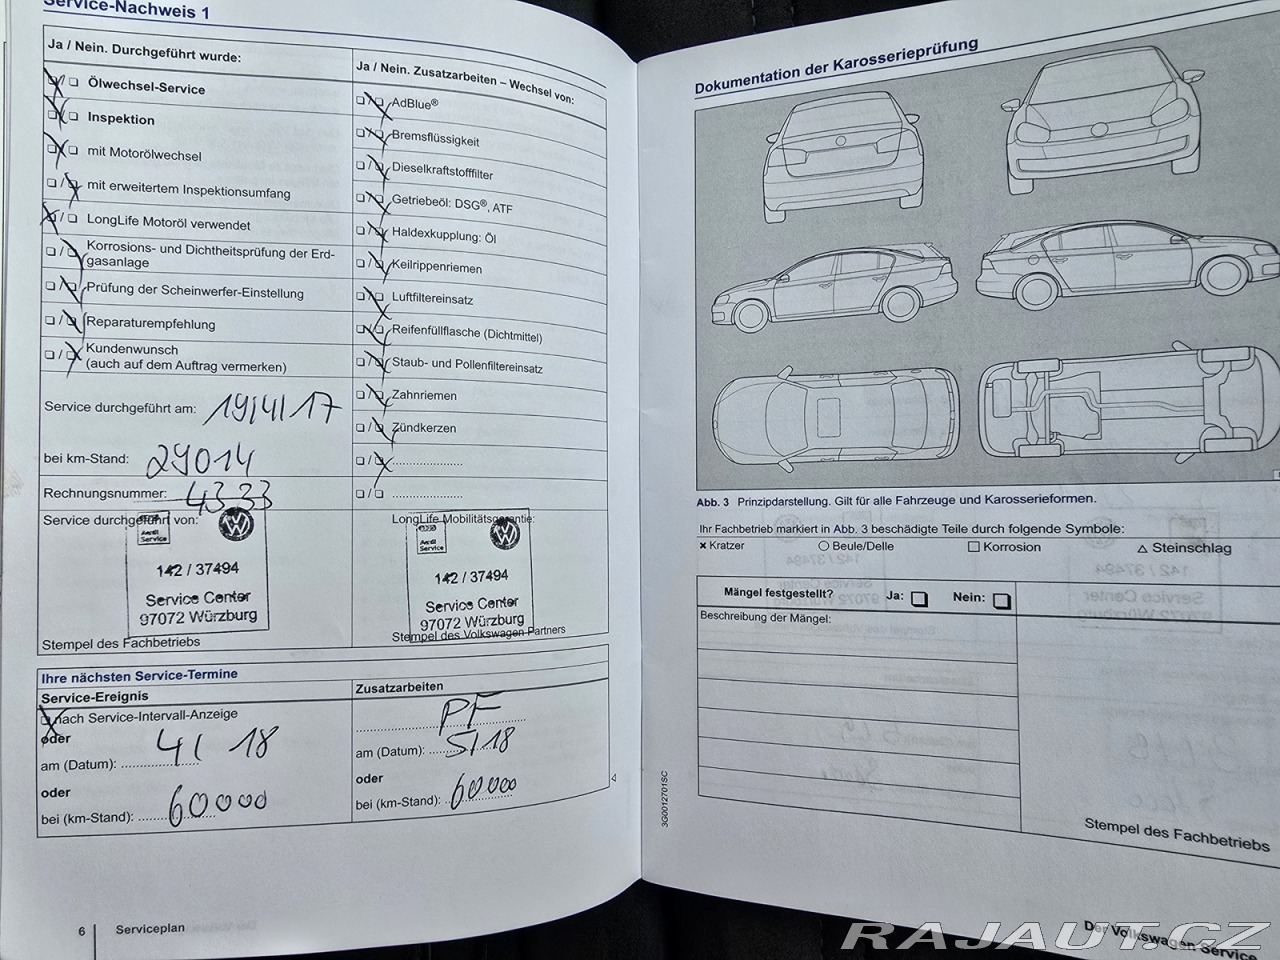 Service-Nachweis 1
Ja / Nein. Durchgeführt wurde:
Ölwechsel-Service
Inspektion
mit Motorölwechsel
mit erweitertem Inspektionsumfang
LongLife Motoröl verwendet
Korrosions- und Dichtheitsprüfung der Erd-
gasanlage
Prüfung der Scheinwerfer-Einstellung
Reparaturempfehlung
Kundenwunsch
(auch auf dem Auftrag vermerken)
Service durchgeführt am: 19/4/17
bei km-Stand: 29014
Rechnungsnummer: 4333
Service durchgeführt von:
Audi
Service
142 / 37494
Service Center
97072 Würzburg
Stempel des Fachbetriebs
Ja / Nein. Zusatzarbeiten – Wechsel von:
AdBlue®
Bremsflüssigkeit
Dieselkraftstofffilter
Getriebeöl: DSG®, ATF
Haldexkupplung: Öl
Keilrippenriemen
Luftfiltereinsatz
Reifenfüllflasche (Dichtmittel)
Staub- und Pollenfiltereinsatz
Zahnriemen
Zündkerzen
LongLife Mobilitätsgarantie:
Audi
Service
142 / 37494
Service Center
97072 Würzburg
Stempel des Volkswagen Partners
Ihre nächsten Service-Termine
Service-Ereignis
nach Service-Intervall-Anzeige
oder
am (Datum): 4/ 18
oder
bei (km-Stand): 60000
Zusatzarbeiten
PF
am (Datum): 5/18
oder
bei (km-Stand): 60000
6 Serviceplan
Dokumentation der Karosserieprüfung
Abb. 3 Prinzipdarstellung. Gilt für alle Fahrzeuge und Karosserieformen.
Ihr Fachbetrieb markiert in Abb. 3 beschädigte Teile durch folgende Symbole:
× Kratzer ○ Beule/Delle □ Korrosion △ Steinschlag
Mängel festgestellt? Ja: Nein:
Beschreibung der Mängel:
Stempel des Fachbetriebs
3G0012701SC
Der Volkswagen Service
RAJAUT.CZ